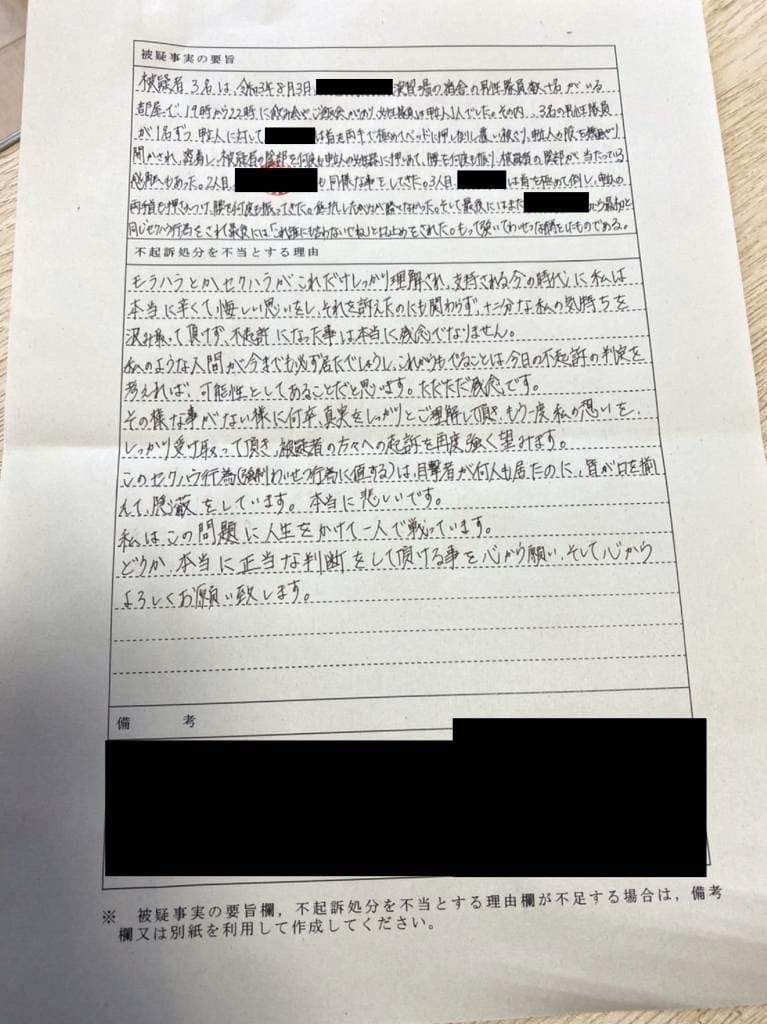 被疑事実の要旨
被疑者3名は、令和3年8月3日、演習場の宿舎の男性隊員数十名がいる
部屋で、19時から22時に飲み会があり、女性隊員は申立人1人でした。その内、3名の男性隊員
が1名ずつ、申立人に対しては首を両手で極めてベッドに押し倒し覆い被さり、申立人の股を
開かされ、密着し、被疑者の陰部を何度も申立人の女性器に押しあて、腰を何度も振り、被疑者の陰部が当たっている
感触もあった。2人目、も同様な事をしてきた。3人目、は首を極めて倒し、申立人の
両手首を押さえつけ、腰を何度も振ってきた。抵抗したが力が勝てなかった。そして最後にはまたから最初と
同じセクハラ行為をされ最後には「これ誰にも言わないでね」と口止めをされた。もって強いてわいせつな行為をしたものである。
不起訴処分を不当とする理由
モラハラとか、セクハラがこれだけしっかり理解され、支持される今の時代に私は
本当に辛くて、悔しい思いをし、それを訴えたのにも関わらず、十二分な私の気持ちを
汲み取って頂けず、不起訴になった事は本当に残念でなりません。
私のような人間が今までも必ず居たでしょうし、これからもでることは今日の不起訴の判定を
考えれば、可能性としてあることだと思います。ただただ残念です。
その様な事がない様に何卒、真実をしっかりとご理解して頂き、もう一度私の想いを、
しっかり受け取って頂き、被疑者の方々への起訴を再度強く望みます。
このセクハラ行為(強制わいせつ行為に値する)は、目撃者が何人も居たのに、皆が口を揃
えて、隠蔽をしています。本当に悲しいです。
私はこの問題に人生をかけて一人で戦っています。
どうか、本当に正当な判断をして頂ける事を心から願い、そして心から
よろしくお願い致します。
備 考
※ 被疑事実の要旨欄,不起訴処分を不当とする理由欄が不足する場合は,備考
欄又は別紙を利用して作成してください。